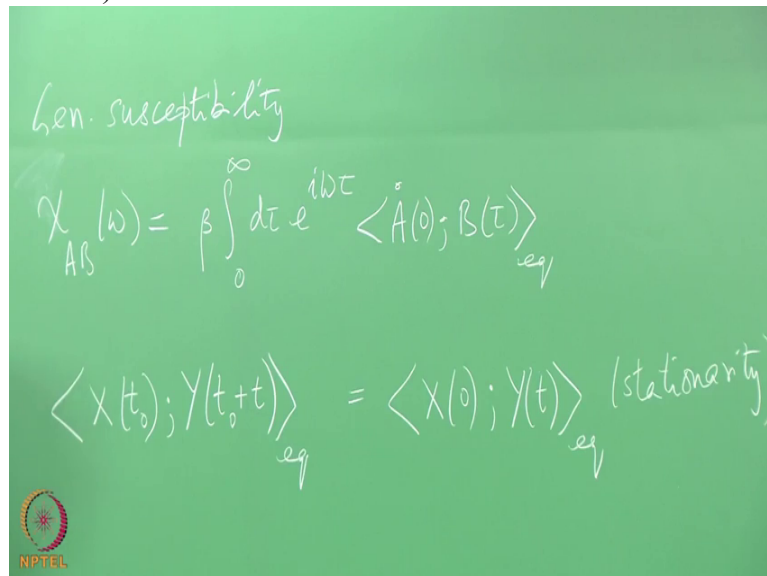 Gen. susceptibility
χ_AB (ω) = β ∫_0^∞ dτ e^{iωτ} ⟨Ȧ(0); B(τ)⟩_eq
⟨X(t₀); Y(t₀+t)⟩_eq = ⟨X(0); Y(t)⟩_eq (stationarity)
NPTEL